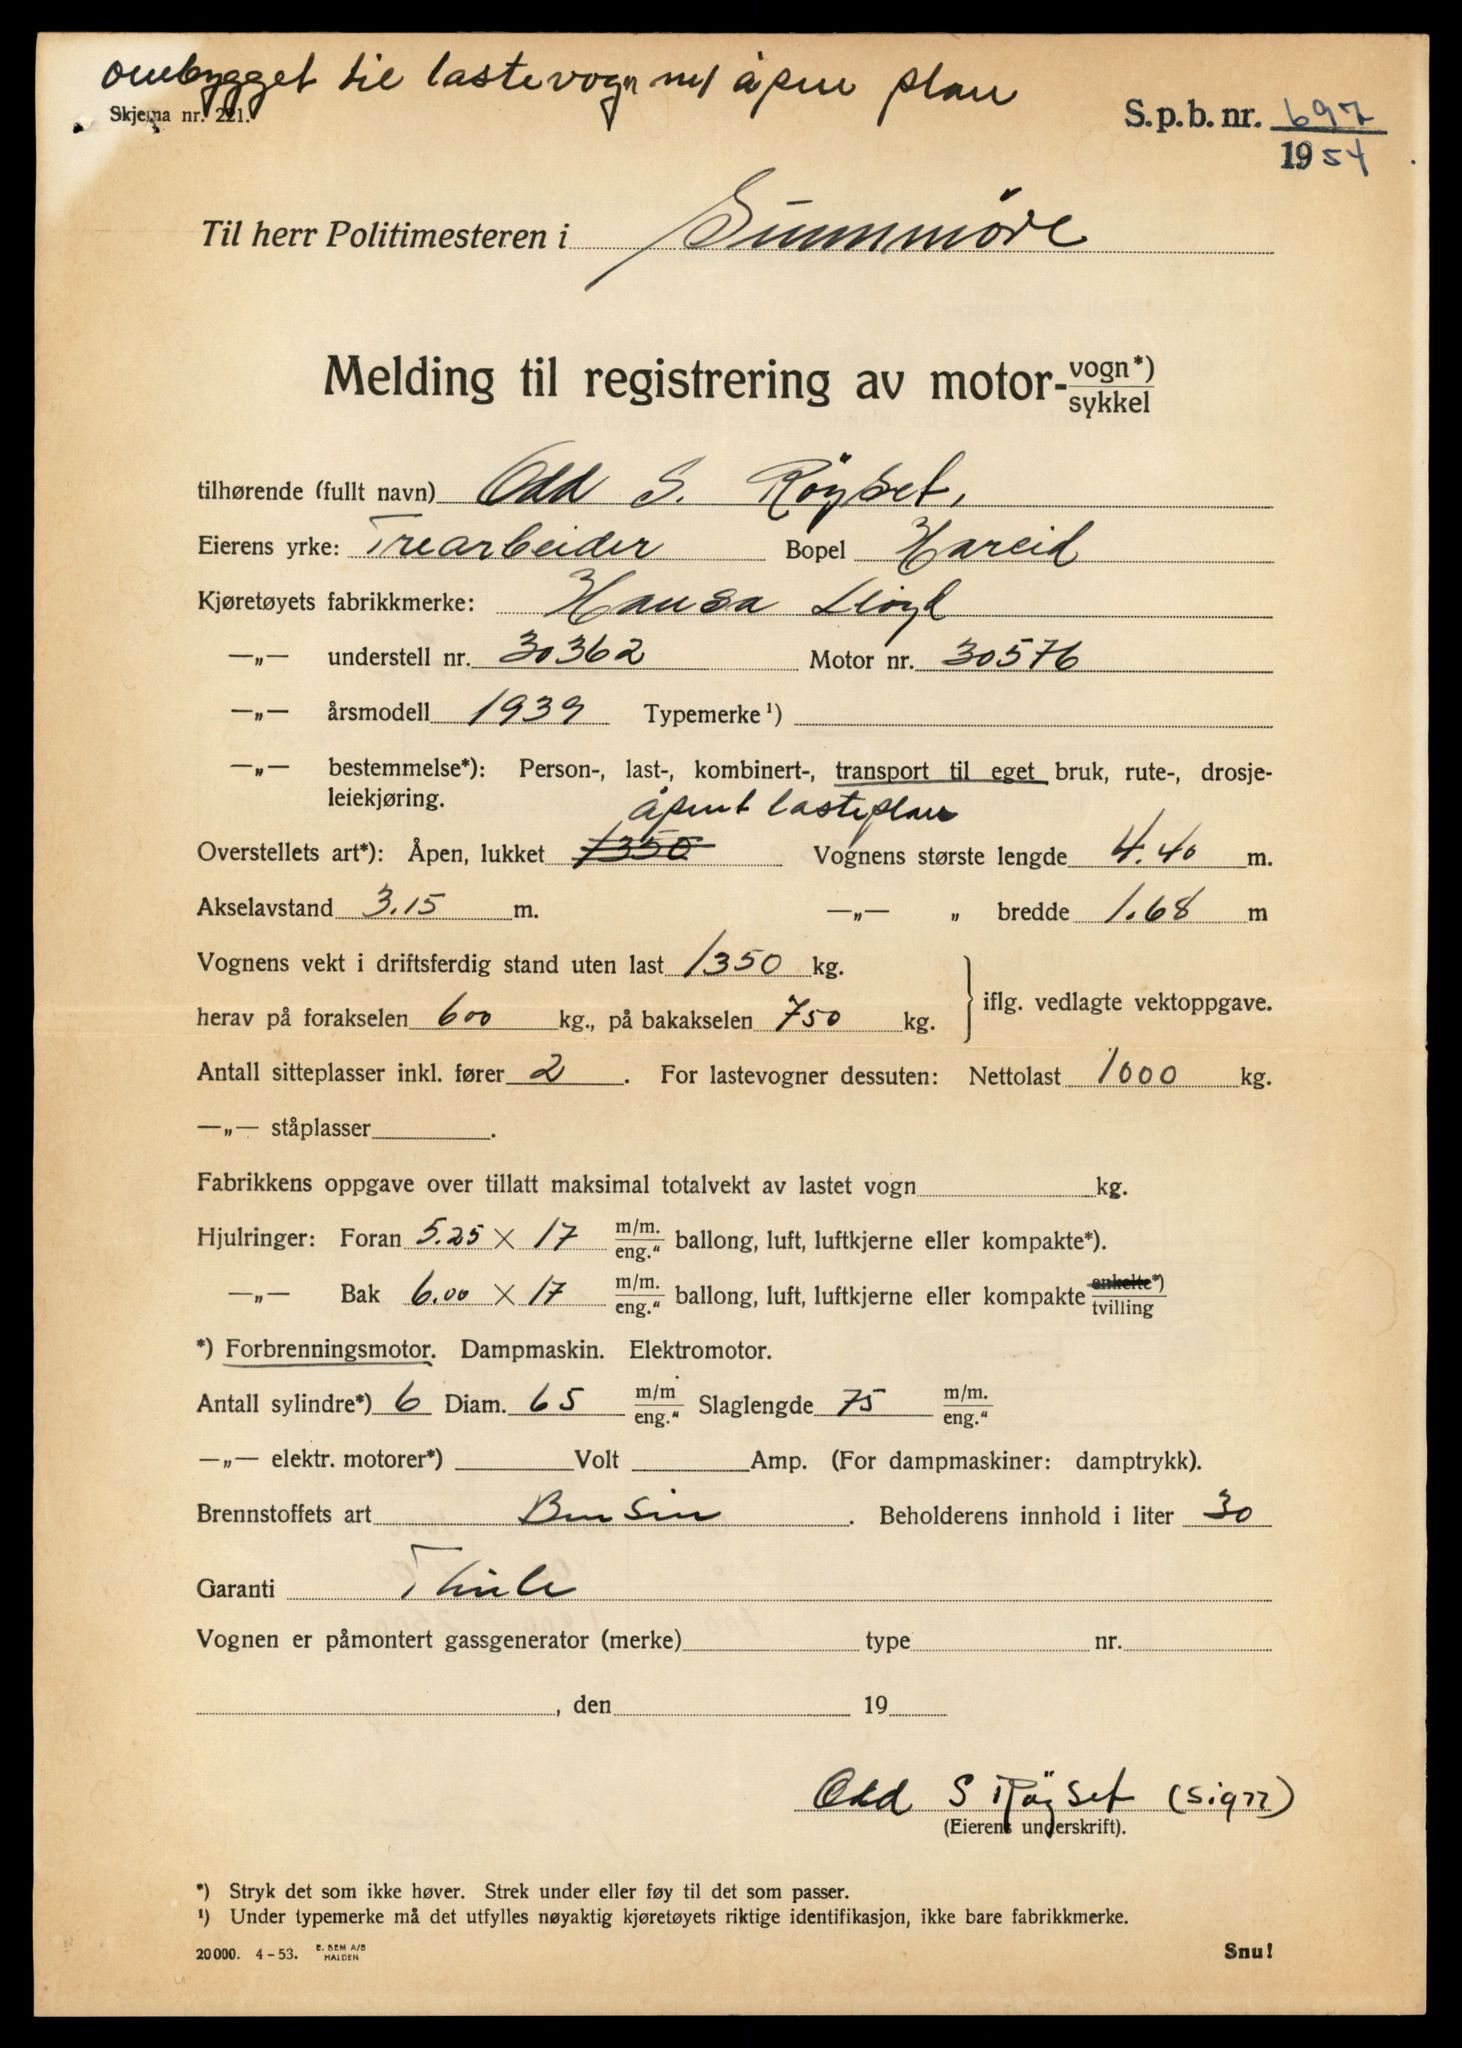 ombygget til lastevogn m/ åpen plan
Skjema nr. 221.
S.p.b. nr. 697
1954
Til herr Politimesteren i Sunnmøre
Melding til registrering av motor-vogn*)/sykkel
tilhørende (fullt navn) Odd S. Röyset,
Eierens yrke: Trearbeider Bopel Hareid
Kjøretøyets fabrikkmerke: Hansa Lloyd
—„— understell nr. 30362 Motor nr. 30576
—„— årsmodell 1939 Typemerke ¹)
—„— bestemmelse*): Person-, last-, kombinert-, transport til eget bruk, rute-, drosje-
leiekjøring.
åpent lasteplan
Overstellets art*): Åpen, lukket 1350 Vognens største lengde 4.40 m.
Akselavstand 3.15 m. —„— „ bredde 1.68 m
Vognens vekt i driftsferdig stand uten last 1350 kg.
herav på forakselen 600 kg., på bakakselen 750 kg. } iflg. vedlagte vektoppgave.
Antall sitteplasser inkl. fører 2. For lastevogner dessuten: Nettolast 1000 kg.
—„— ståplasser .
Fabrikkens oppgave over tillatt maksimal totalvekt av lastet vogn kg.
Hjulringer: Foran 5.25 × 17 m/m./eng.“ ballong, luft, luftkjerne eller kompakte*).
—„— Bak 6.00 × 17 m/m./eng.“ ballong, luft, luftkjerne eller kompakte enkelte*)/tvilling
*) Forbrenningsmotor. Dampmaskin. Elektromotor.
Antall sylindre*) 6 Diam. 65 m/m/eng.“ Slaglengde 75 m/m./eng.“
—„— elektr. motorer*) Volt Amp. (For dampmaskiner: damptrykk).
Brennstoffets art Bensin. Beholderens innhold i liter 30
Garanti Thule
Vognen er påmontert gassgenerator (merke) type nr.
, den 19
Odd S Röyset (sign)
(Eierens underskrift).
*) Stryk det som ikke høver. Strek under eller føy til det som passer.
¹) Under typemerke må det utfylles nøyaktig kjøretøyets riktige identifikasjon, ikke bare fabrikkmerke.
20 000. 4-53. E. SEM A/S HALDEN
Snu!